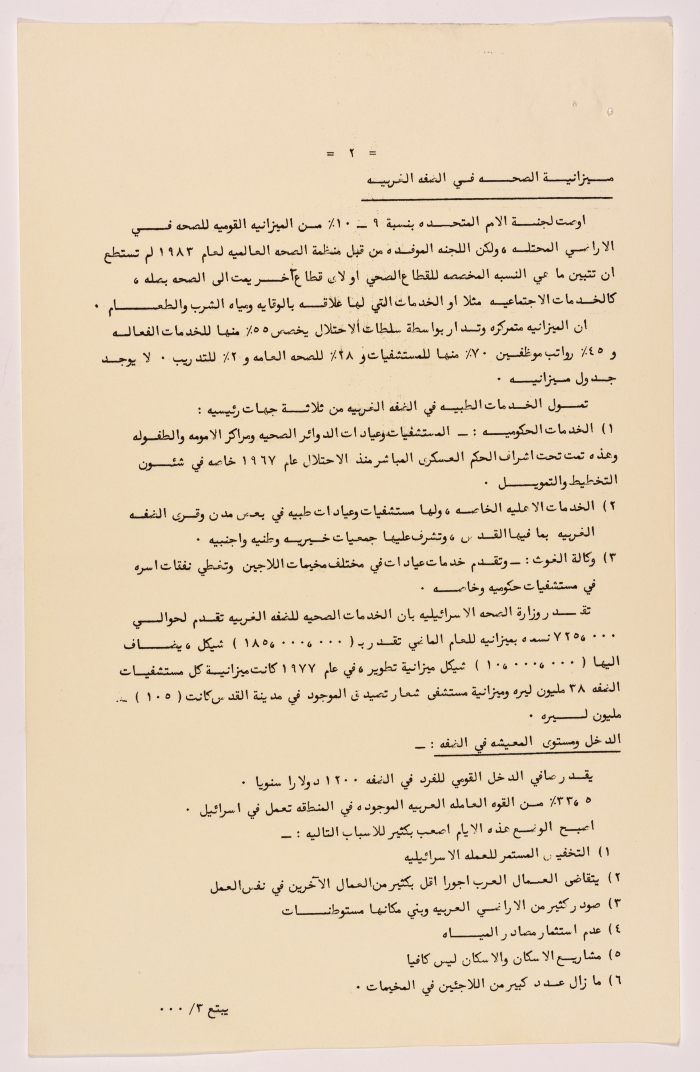 = ٢ =
ميزانية الصحه في الضفه الغربيه
اوصت لجنة الامم المتحده بنسبة ٩ ــ ١٠٪ من الميزانيه القوميه للصحه في
الاراضي المحتله ، ولكن اللجنه الموفده من قبل منظمة الصحه العالميه لعام ١٩٨٣ لم تستطع
ان تتبين ما هي النسبه المخصصه للقطاع الصحي او لاى قطاع آخر يمت الى الصحه بصله ،
كالخدمات الاجتماعيه مثلا او الخدمات التي لها علاقه بالوقايه ومياه الشرب والطعام .
ان الميزانيه متمركزه وتدار بواسطة سلطات الاحتلال يخصص ٥٥٪ منها للخدمات الفعاله
و ٤٥٪ رواتب موظفين ٧٠٪ منها للمستشفيات و ٢٨٪ للصحه العامه و ٢٪ للتدريب . لا يوجد
جدول ميزانيه .
تمول الخدمات الطبيه في الضفه الغربيه من ثلاثة جهات رئيسيه :
١) الخدمات الحكوميه : ــ المستشفيات وعيادات الدوائر الصحيه ومراكز الامومه والطفوله
وهذه تمت تحت اشراف الحكم العسكرى المباشر منذ الاحتلال عام ١٩٦٧ خاصه في شئون
التخطيط والتمويل .
٢) الخدمات الاهليه الخاصه ، ولها مستشفيات وعيادات طبيه في بعض مدن وقرى الضفه
الغربيه بما فيها القدس ، وتشرف عليها جمعيات خيريه وطنيه واجنبيه .
٣) وكالة الغوث : ــ وتقدم خدمات عيادات في مختلف مخيمات اللاجين وتغطي نفقات اسره
في مستشفيات حكوميه وخاصه .
تقدر وزارة الصحه الاسرائيليه بان الخدمات الصحيه للضفه الغربيه تقدم لحوالي
٧٢٥،٠٠٠ نسمه بميزانيه للعام الماضي تقدر بـ ( ١٨٥،٠٠٠،٠٠٠ ) شيكل ، يضاف
اليها ( ١٠،٠٠٠،٠٠٠ ) شيكل ميزانية تطوير ، في عام ١٩٧٧ كانت ميزانية كل مستشفيات
الضفه ٣٨ مليون ليره وميزانية مستشفى شعار تصيدق الموجود في مدينة القدس كانت ( ١٠٥ ) ــ
مليون ليره .
الدخل ومستوى المعيشه في الضفه : ــ
يقدر صافي الدخل القومي للفرد في الضفه ١٢٠٠ دولارا سنويا .
٣٣،٥٪ من القوه العامله العربيه الموجوده في المنطقه تعمل في اسرائيل .
اصبح الوضع هذه الايام اصعب بكثير للاسباب التاليه : ــ
١) التخفيض المستمر للعمله الاسرائيليه
٢) يتقاضى العمال العرب اجورا اقل بكثير من العمال الآخرين في نفس العمل
٣) صودر كثير من الاراضي العربيه وبني مكانها مستوطنات
٤) عدم استثمار مصادر المياه
٥) مشاريع الاسكان والاسكان ليس كافيا
٦) ما زال عدد كبير من اللاجئين في المخيمات .
يبتع ٣/ ٠٠٠